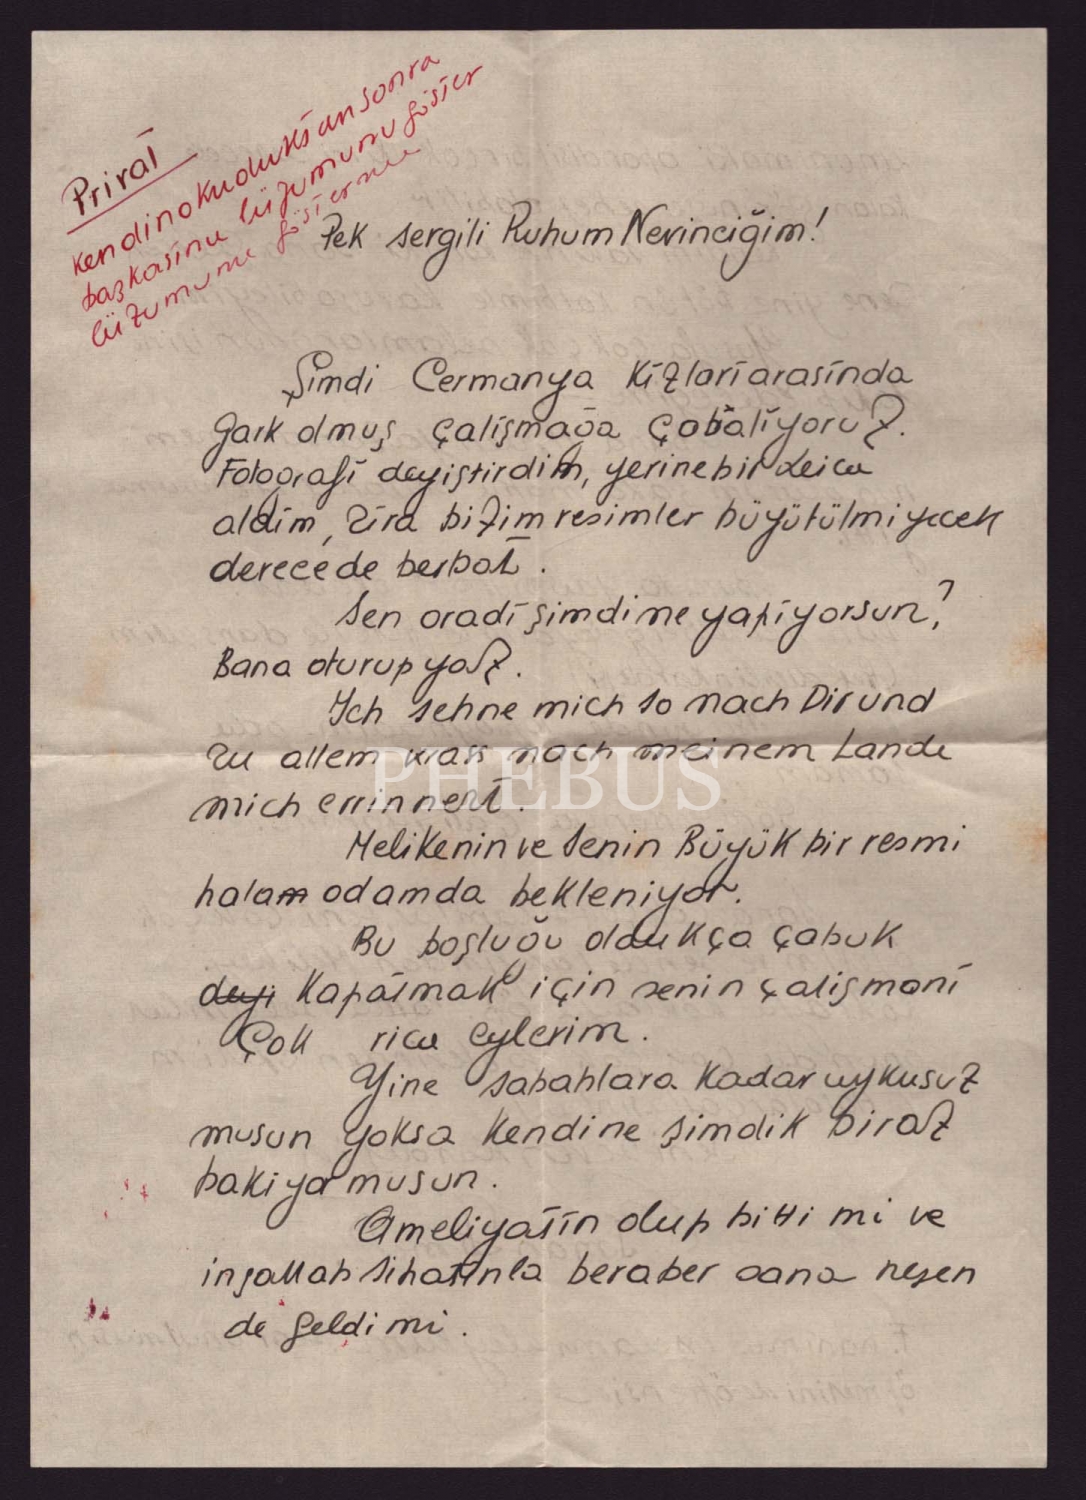 Privat
kendin okuduktan sonra
başkasına lüzumunu göster
lüzumunu gösterme
Pek sevgili Ruhum Nevinciğim!
Şimdi Cermanya kīzlarī arasīnda
gark olmuş çalīşmağa çabalīyoruz.
Fotografī deyiştirdim, yerine bir Leica
aldīm, zīra bizim resimler büyütülmiyecek
derecede berbat.
Sen oradī şimdi ne yapīyorsun?
Bana oturup yaz.
Ich sehne mich so nach Dir und
zu allem was nach meinem Lande
mich errinnert.
Melikenin ve senin Büyük bir resmi
hala odamda bekleniyor.
Bu boşluğu oldukça çabuk
deyi kapatmak için senin çalīşmanī
Çok rica eylerim.
Yine sabahlara kadar uykusuz
musun yoksa kendine şimdik biraz
bakiyormusun.
Ameliyatīn olup bitti mi ve
inşallah sihatīnla beraber sana neşen
de geldi mi.
PHEBUS